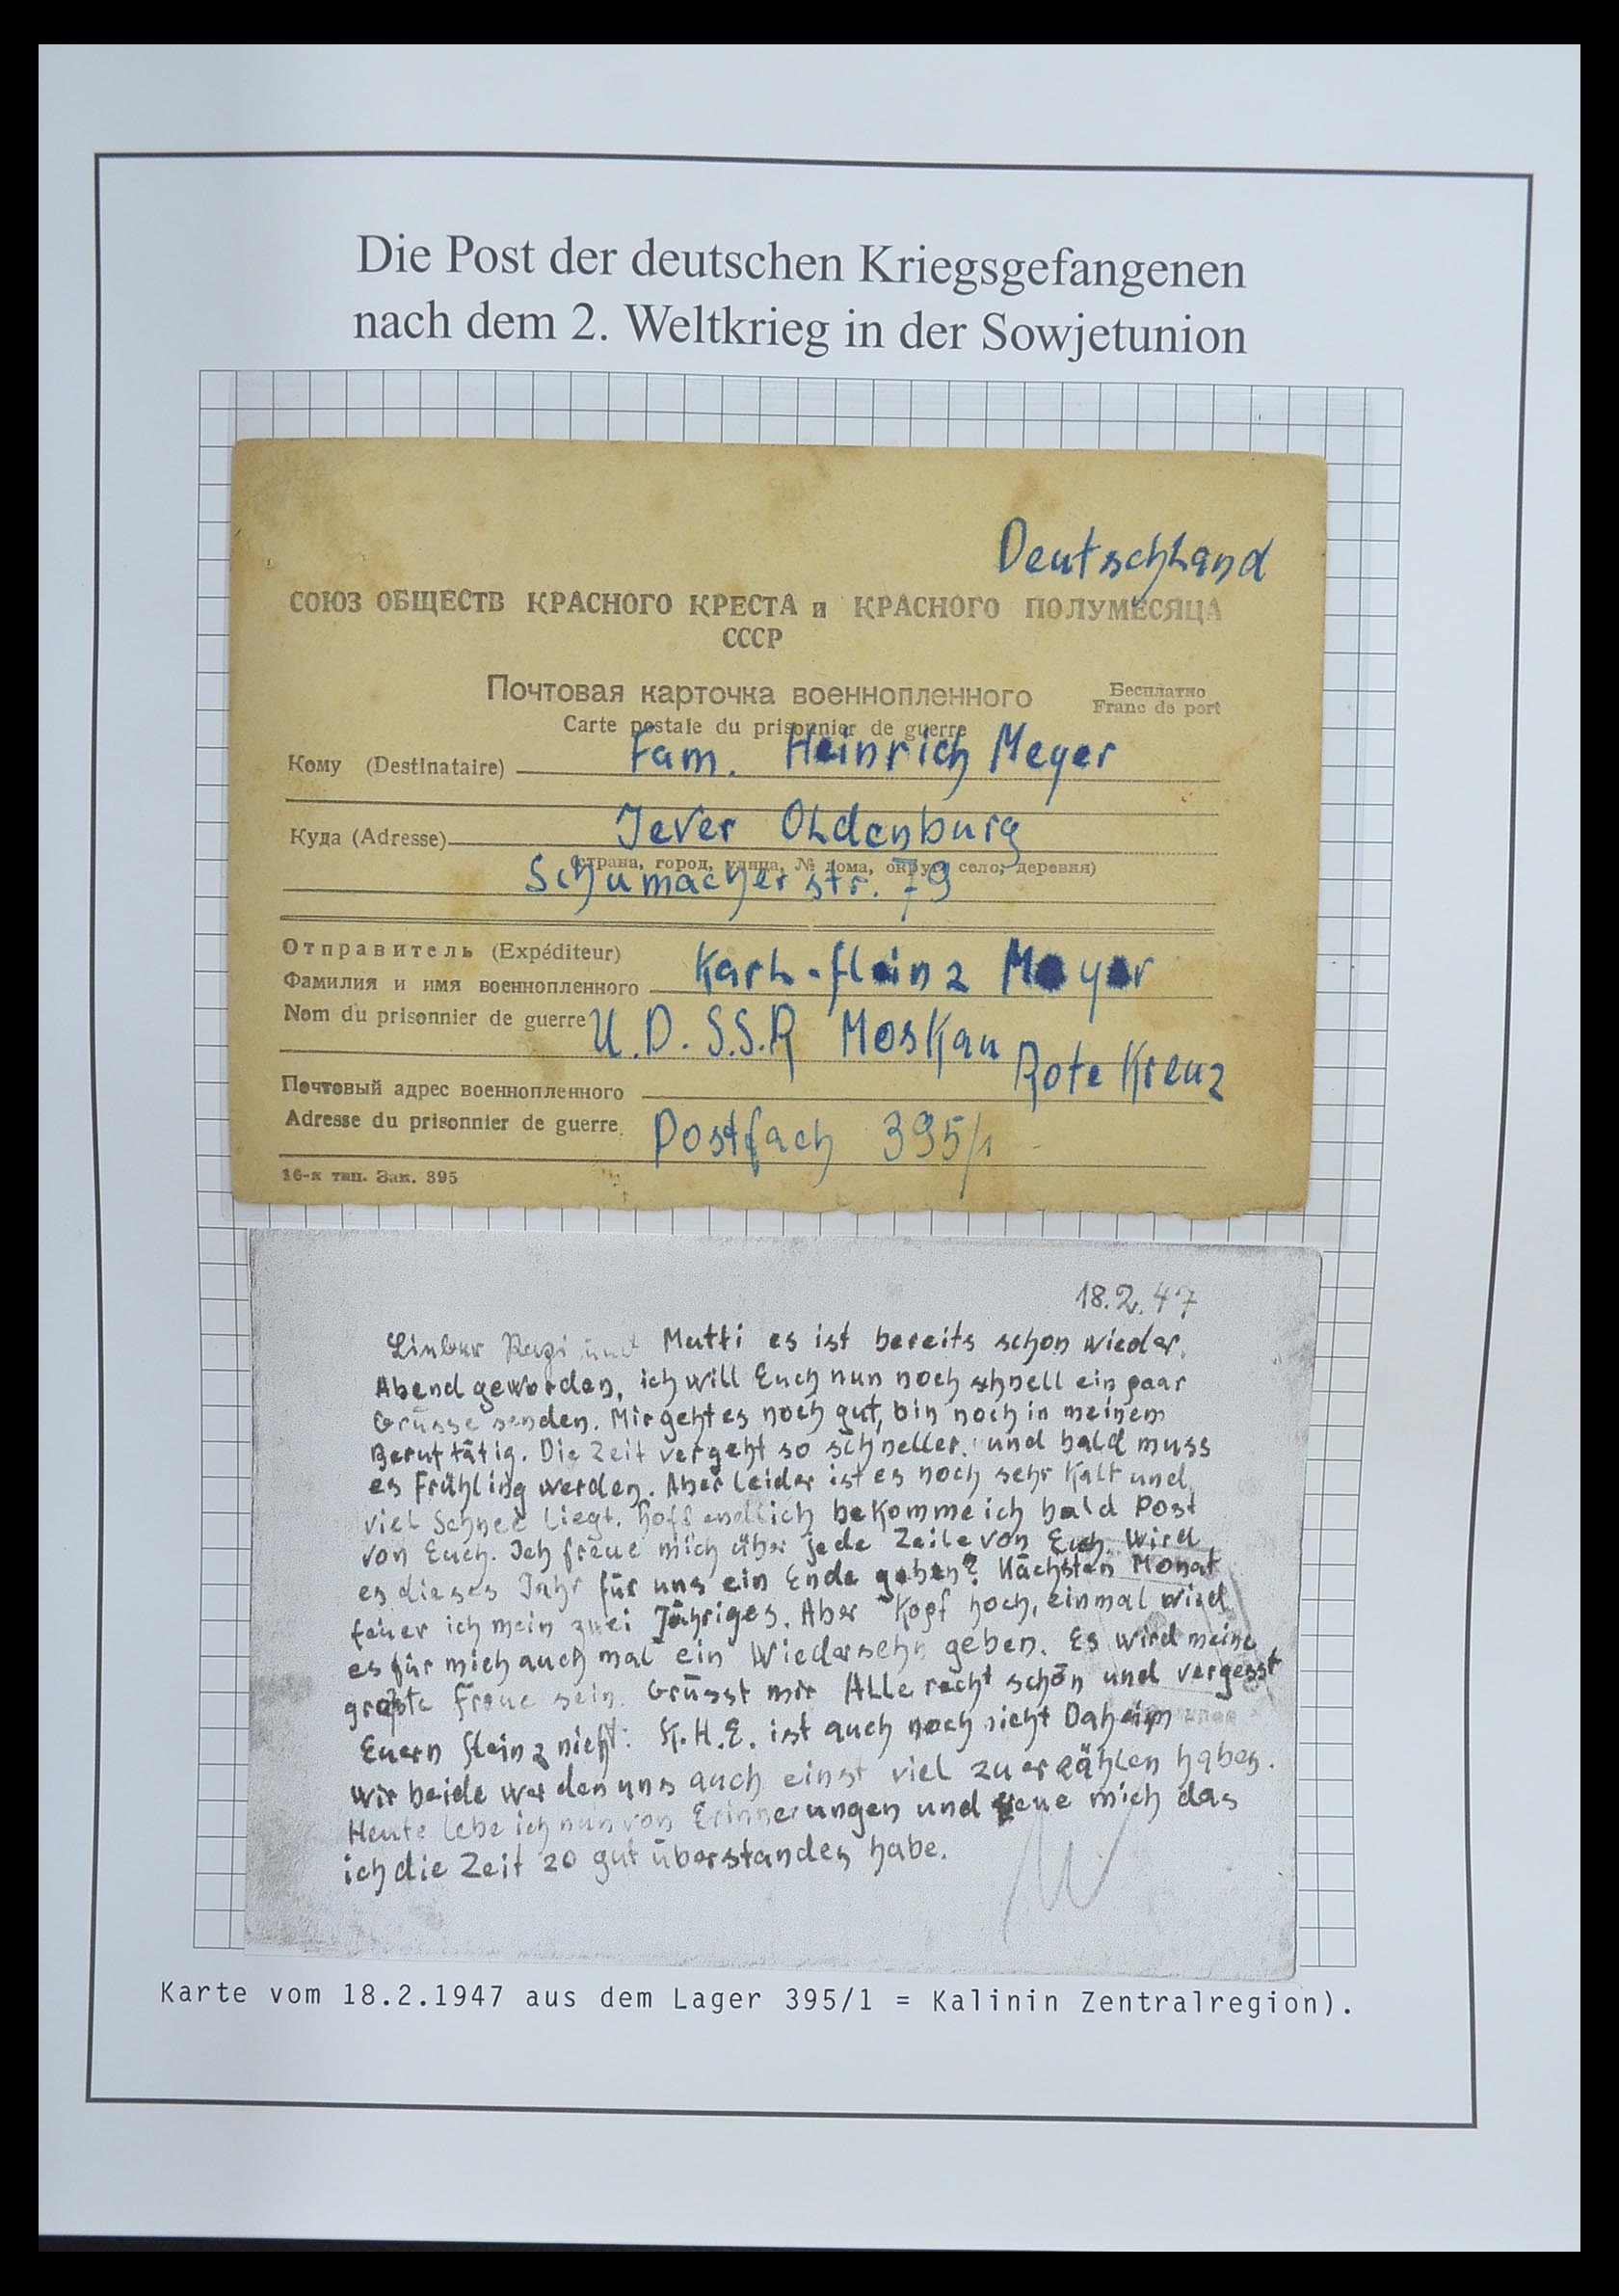 Die Post der deutschen Kriegsgefangenen
nach dem 2. Weltkrieg in der Sowjetunion
Deutschland
СОЮЗ ОБЩЕСТВ КРАСНОГО КРЕСТА и КРАСНОГО ПОЛУМЕСЯЦА
СССР
Почтовая карточка военнопленного
Бесплатно
Franc de port
Carte postale du prisonnier de guerre
Кому (Destinataire) Fam. Heinrich Meyer
Куда (Adresse) Jever Oldenburg
(страна, город, улица, № дома, округ, село, деревня)
Schumacherstr. 79
Отправитель (Expéditeur)
Фамилия и имя военнопленного Karl-Heinz Meyer
Nom du prisonnier de guerre U.D.S.S.R Moskau
Rote Kreuz
Почтовый адрес военнопленного
Adresse du prisonnier de guerre. Postfach 395/1
16-я тип. Зак. 395
18.2.47
Lieber Papi und Mutti es ist bereits schon wieder.
Abend geworden, ich will Euch nun noch schnell ein paar
Grüsse senden. Mir geht es noch gut, bin noch in meinem
Beruf tätig. Die Zeit vergeht so schneller. und bald muss
es Frühling werden. Aber leider ist es noch sehr kalt und
viel Schnee liegt. hoffendlich bekomme ich bald Post
von Euch. Ich freue mich über jede Zeile von Euch. Wird
es dieses Jahr für uns ein Ende geben? Nächsten Monat
feier ich mein zwei Jähriges. Aber Kopf hoch, einmal wird
es für mich auch mal ein Wiedersehn geben. Es wird meine
größte Freue sein. Grüsst mir Alle recht schön und vergesst
Euern Heinz nicht: K.H.E. ist auch noch nicht Daheim
wir beide werden uns auch einst viel zu erzählen haben.
Heute lebe ich nun von Erinnerungen und freue mich das
ich die Zeit so gut überstanden habe.
Karte vom 18.2.1947 aus dem Lager 395/1 = Kalinin Zentralregion).